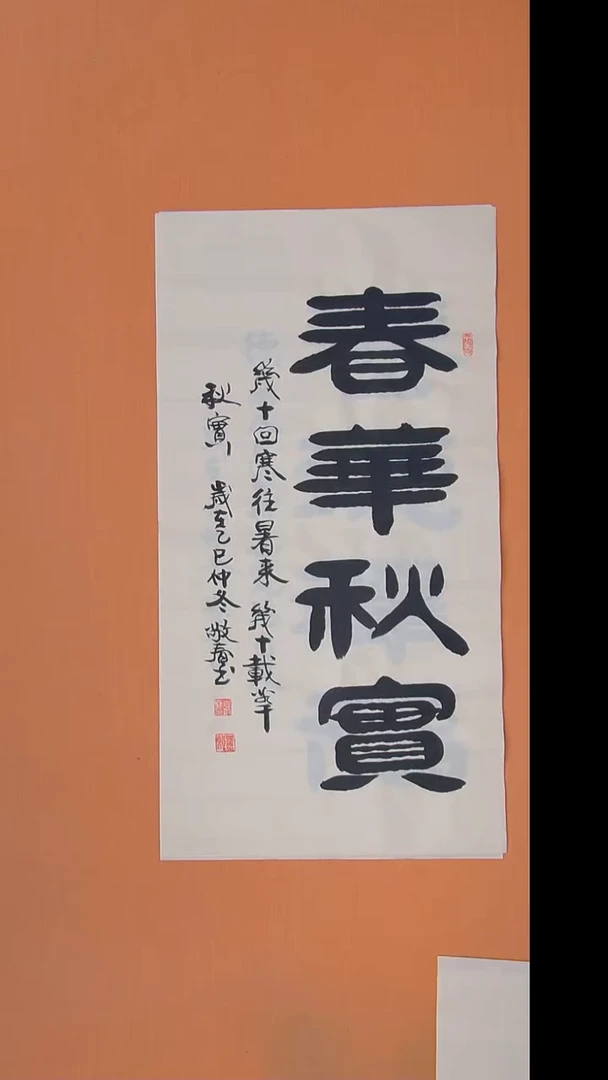 春華秋實
幾十回寒往暑来幾十載華
秋實歲在乙巳仲冬敬春書